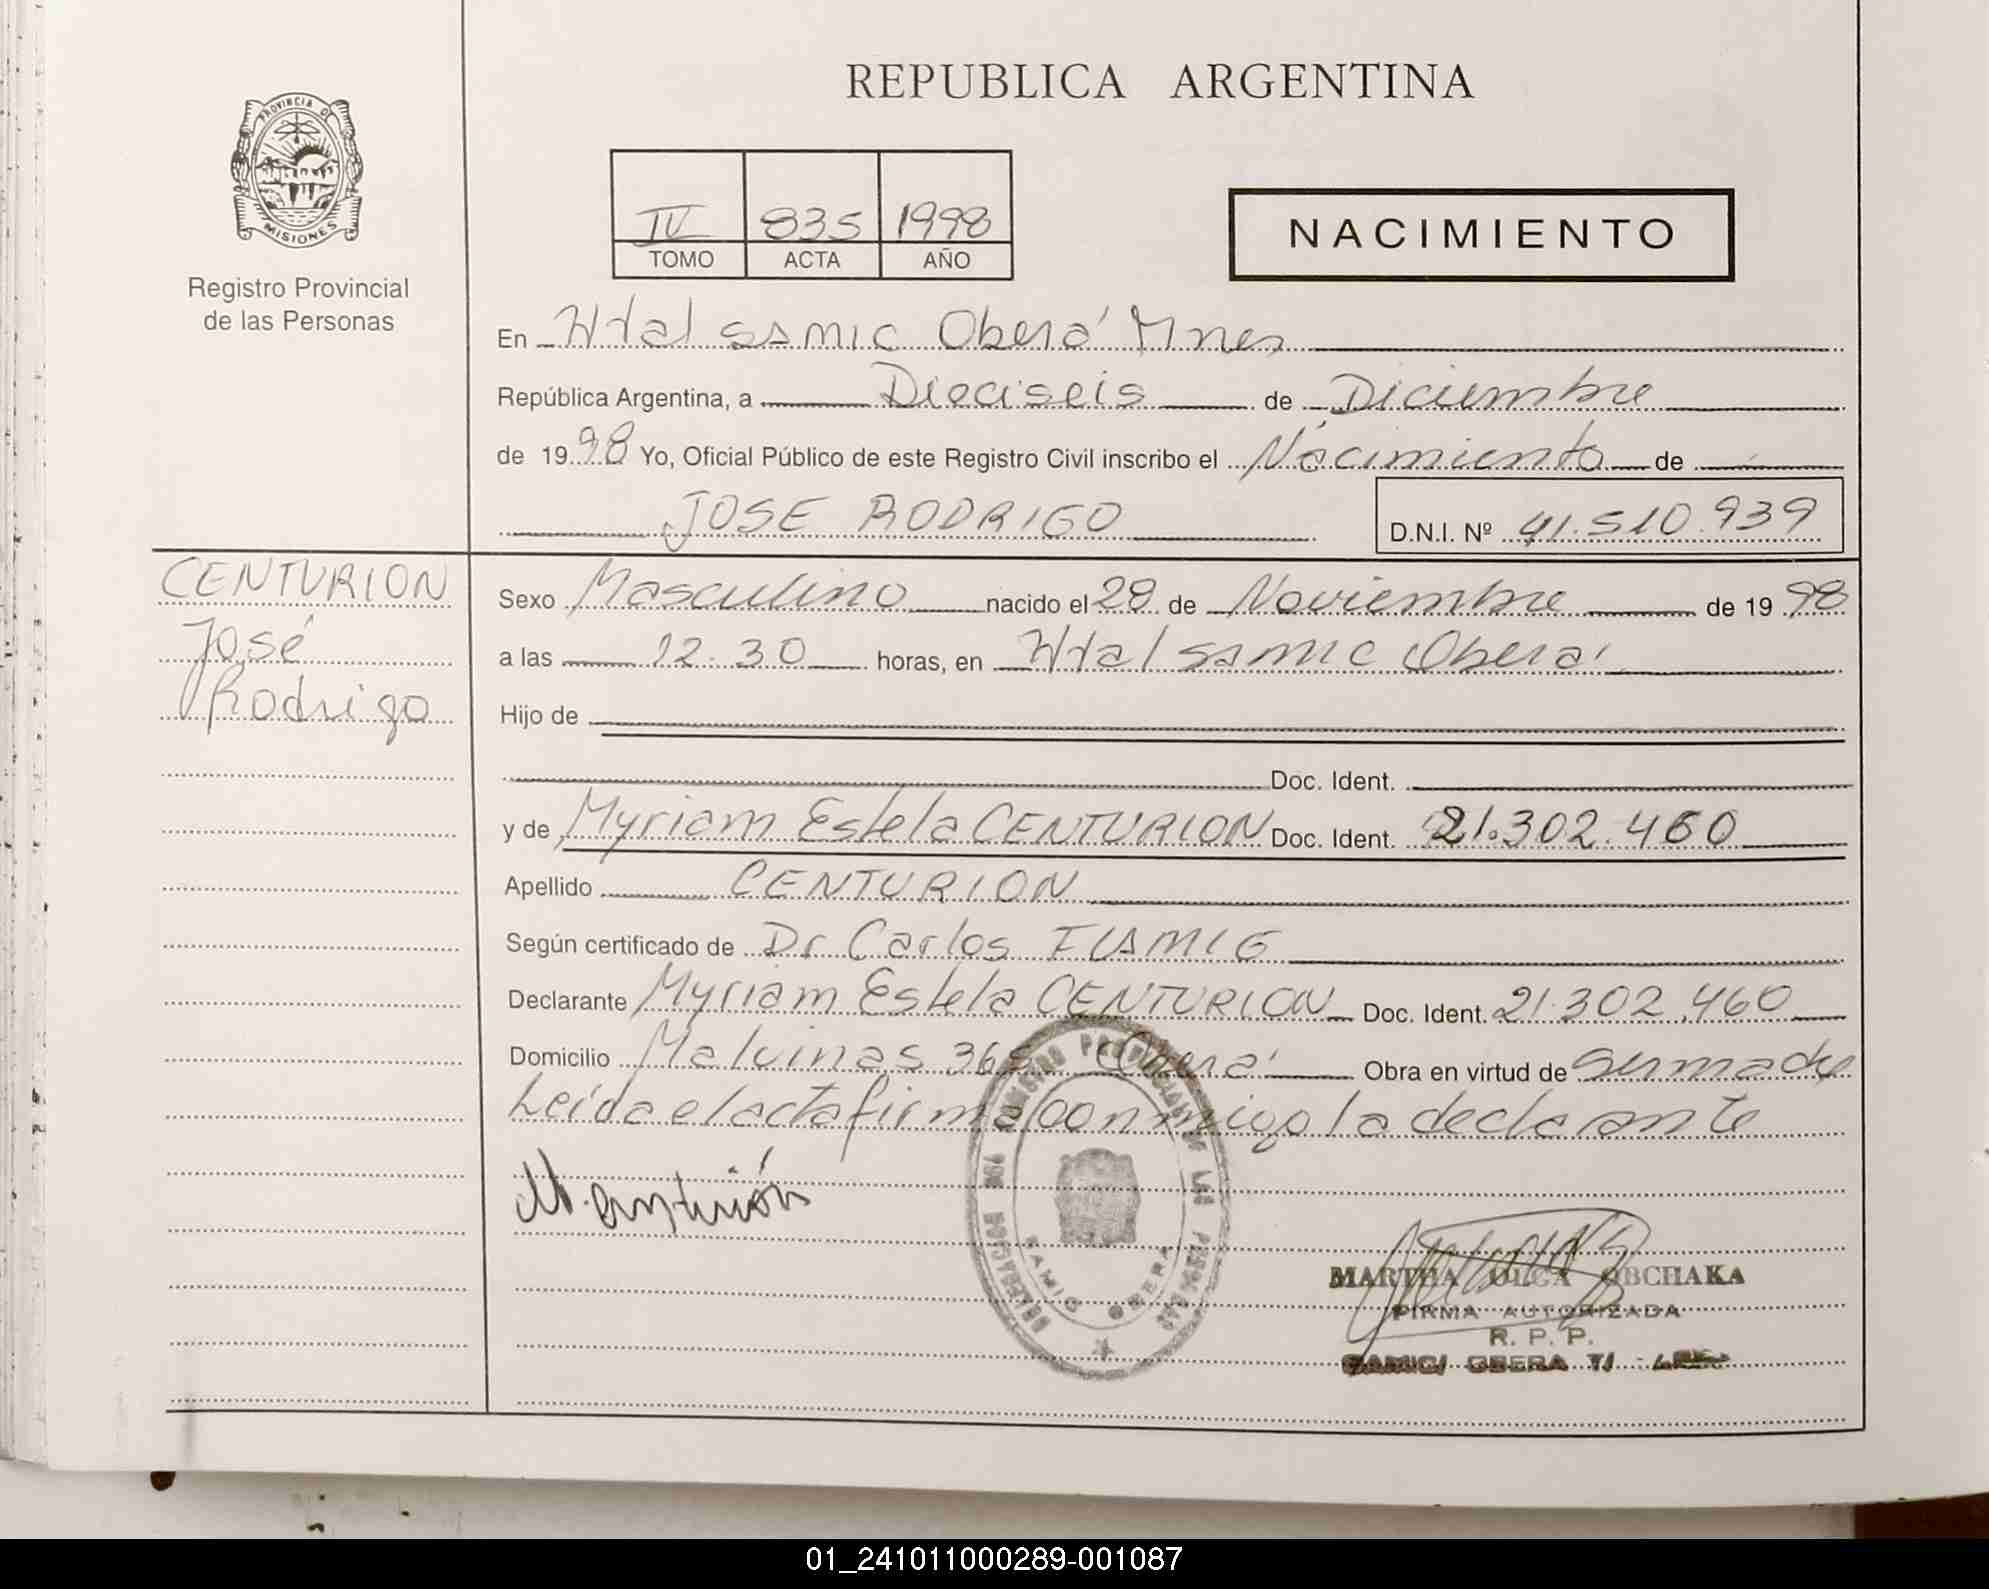 REPUBLICA ARGENTINA
PROVINCIA DE
MISIONES
Registro Provincial
de las Personas
IV 835 1998
TOMO ACTA AÑO
NACIMIENTO
En Htal SAMIC Oberá Mnes
República Argentina, a Dieciseis de Diciembre
de 1998 Yo, Oficial Público de este Registro Civil inscribo el Nacimiento de
JOSE RODRIGO D.N.I. Nº 41.510.939
CENTURION
José
Rodrigo
Sexo Masculino nacido el 28 de Noviembre de 1998
a las 12.30 horas, en Htal SAMIC Oberá
Hijo de
Doc. Ident.
y de Myriam Estela CENTURION Doc. Ident. 21.302.460
Apellido CENTURION
Según certificado de Dr Carlos
Declarante Myriam Estela CENTURION Doc. Ident. 21.302.460
Domicilio Malvinas 365 Oberá Obra en virtud de
Leída el acta firma conmigo la declarante
M. Centurión
REGISTRO PROVINCIAL DE LAS PERSONAS
SAMIC OBERA
MARTHA OLGA OBCHAKA
FIRMA AUTORIZADA
R. P. P.
SAMIC/ OBERA
01_241011000289-001087